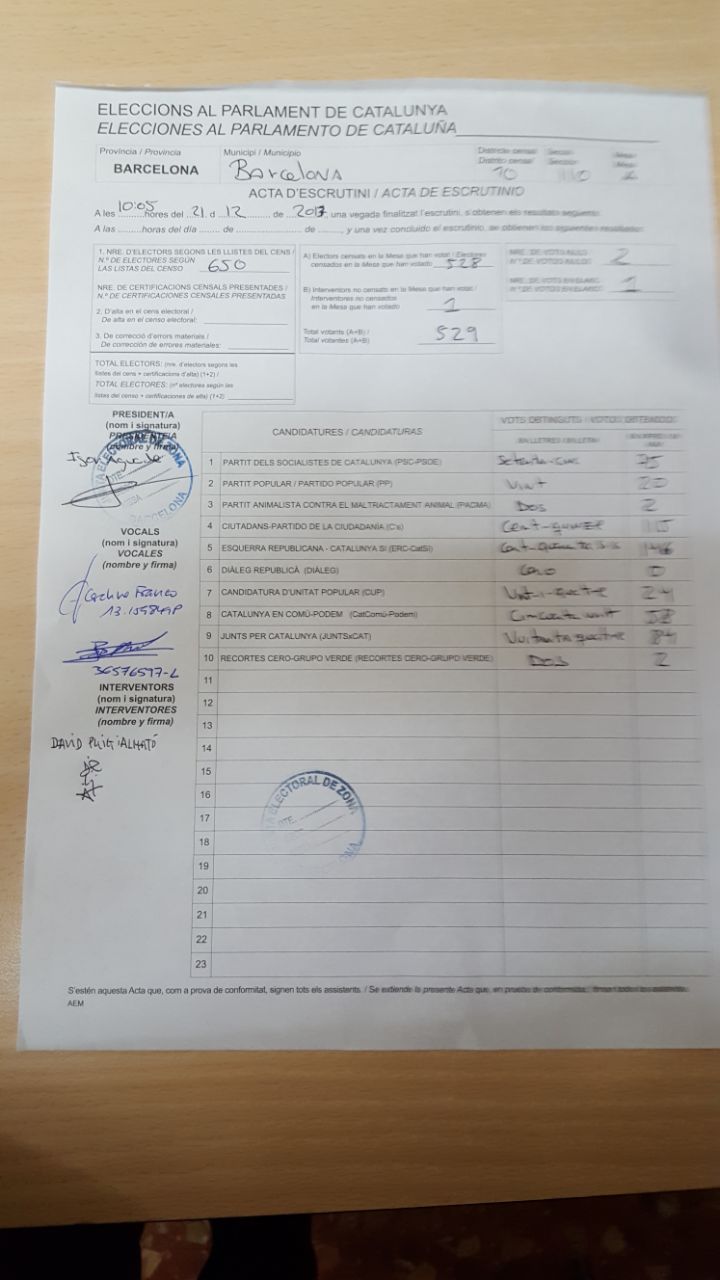 ELECCIONS AL PARLAMENT DE CATALUNYA
ELECCIONES AL PARLAMENTO DE CATALUÑA
Província / Provincia
BARCELONA
Municipi / Municipio
Barcelona
Districte censal
Distrito censal
10
ACTA D'ESCRUTINI / ACTA DE ESCRUTINIO
A les 10:05 hores del 21 d 12 de 2017, una vegada finalitzat l'escrutini, s'obtenen els resultats següents:
A las ......... horas del día ...... de ............ de ......, y una vez concluido el escrutinio, se obtienen los siguientes resultados:
1. NRE. D'ELECTORS SEGONS LES LLISTES DEL CENS /
N.º DE ELECTORES SEGÚN
LAS LISTAS DEL CENSO 650
NRE. DE CERTIFICACIONS CENSALS PRESENTADES /
N.º DE CERTIFICACIONES CENSALES PRESENTADAS
2. D'alta en el cens electoral /
De alta en el censo electoral:
3. De correcció d'errors materials /
De corrección de errores materiales:
TOTAL ELECTORS: (nre. d'electors segons les
llistes del cens + certificacions d'alta) (1+2) /
TOTAL ELECTORES: (nº electores según las
listas del censo + certificaciones de alta) (1+2)
A) Electors censats en la Mesa que han votat / Electores
censados en la Mesa que han votado 528
B) Interventors no censats en la Mesa que han votat /
Interventores no censados
en la Mesa que han votado 1
Total votants (A+B) /
Total votantes (A+B) 529
NRE. DE VOTS NULS
N.º DE VOTOS NULOS 2
NRE. DE VOTS EN BLANC
N.º DE VOTOS EN BLANCO 1
PRESIDENT/A
(nom i signatura)
PRESIDENTE/A
(nombre y firma)
VOCALS
(nom i signatura)
VOCALES
(nombre y firma)
Franco
36576597-L
INTERVENTORS
(nom i signatura)
INTERVENTORES
(nombre y firma)
DAVID PUIG i ALMATÓ
CANDIDATURES / CANDIDATURAS
VOTS OBTINGUTS / VOTOS OBTENIDOS
EN LLETRES / EN LETRA
1 PARTIT DELS SOCIALISTES DE CATALUNYA (PSC-PSOE) Setanta-cinc 75
2 PARTIT POPULAR / PARTIDO POPULAR (PP) Vint 20
3 PARTIT ANIMALISTA CONTRA EL MALTRACTAMENT ANIMAL (PACMA) Dos 2
4 CIUTADANS-PARTIDO DE LA CIUDADANÍA (C's) 115
5 ESQUERRA REPUBLICANA - CATALUNYA SÍ (ERC-CatSí) 146
6 DIÀLEG REPUBLICÀ (DIÀLEG) 0
7 CANDIDATURA D'UNITAT POPULAR (CUP) Vint-i-quatre 24
8 CATALUNYA EN COMÚ-PODEM (CatComú-Podem) 58
9 JUNTS PER CATALUNYA (JUNTSxCAT) Vuitanta quatre 84
10 RECORTES CERO-GRUPO VERDE (RECORTES CERO-GRUPO VERDE) Dos 2
11
12
13
14
15
16
17
18
19
20
21
22
23
ELECTORAL DE ZONA
S'estén aquesta Acta que, com a prova de conformitat, signen tots els assistents. / Se extiende la presente Acta que, en prueba de conformidad, firman todos los asistentes.
AEM